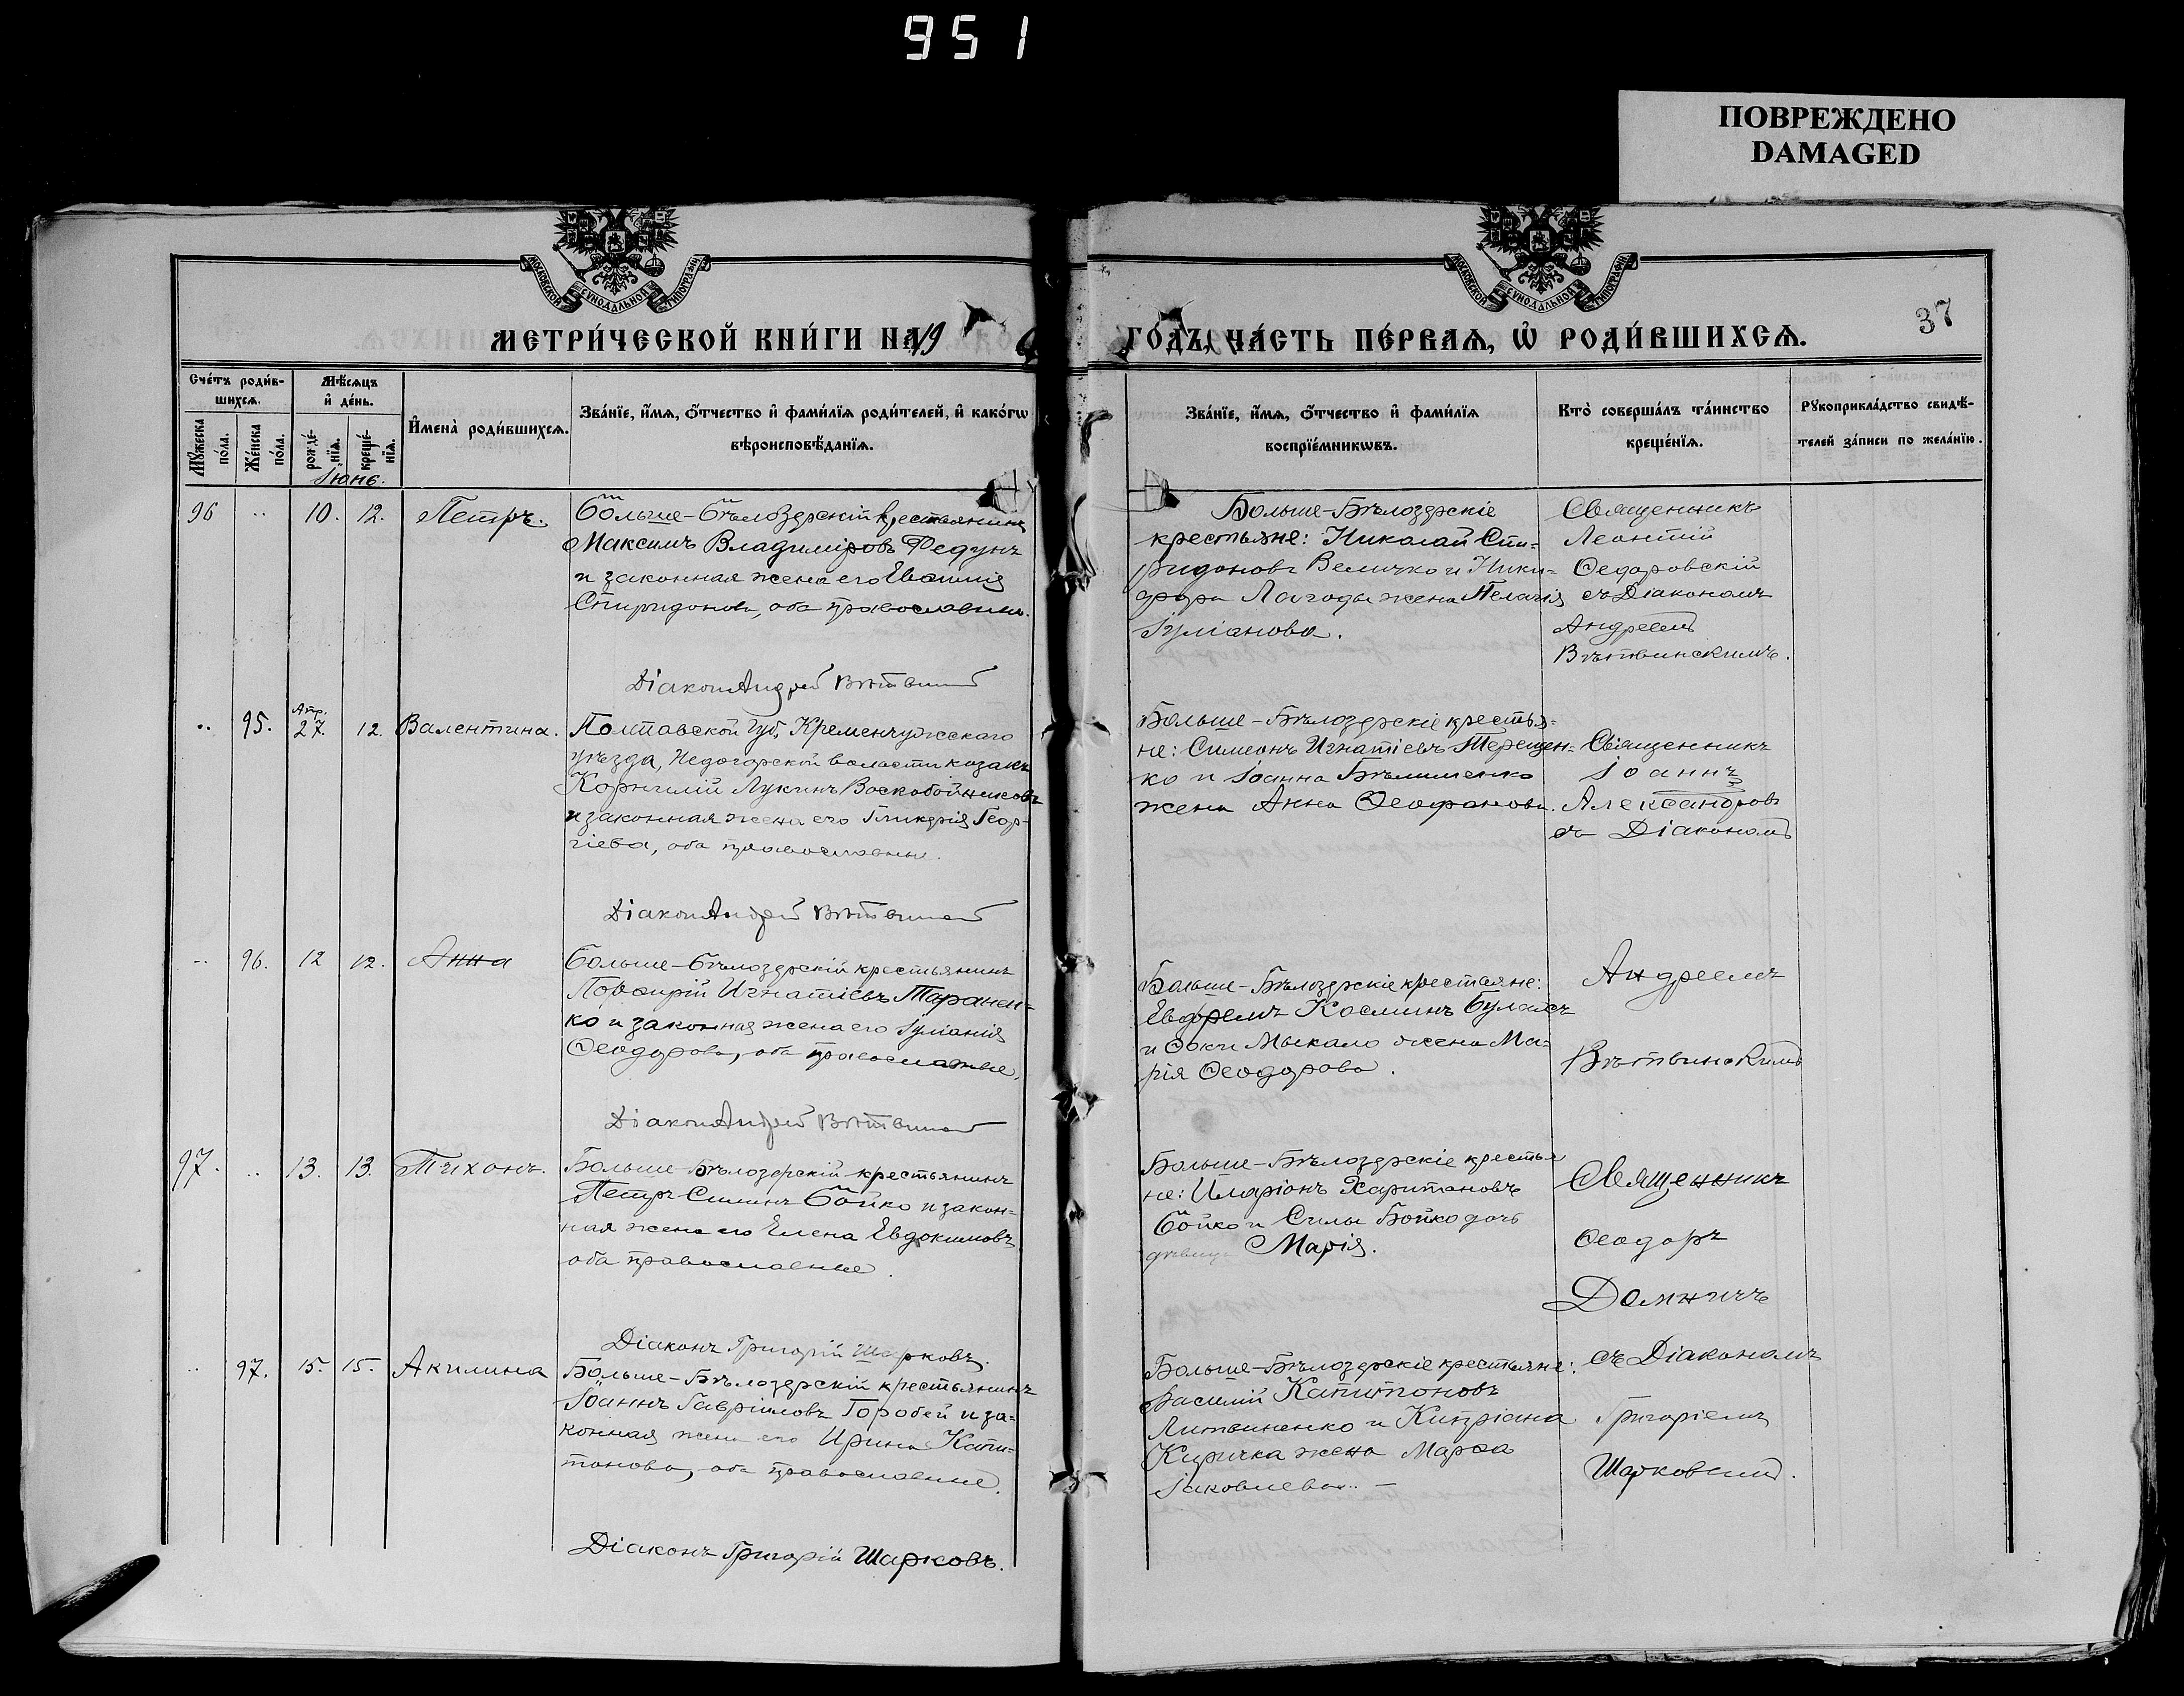 951
ПОВРЕЖДЕНО
DAMAGED
МОСКОВСКОЙ СѴНОДАЛЬНОЙ ТИПОГРАФІИ
МОСКОВСКОЙ СѴНОДАЛЬНОЙ ТИПОГРАФІИ
37
МЕТРИ́ЧЕСКОЙ КНИ́ГИ НА 19
ГО́ДЪ, ЧА́СТЬ ПЕ́РВАѦ, Ѡ҆ РОДИ́ВШИХСѦ.
Сче́тъ роди́в-
шихсѧ.
Мѣ́сѧцъ
и҆ де́нь.
И҆мена̀ роди́вшихсѧ.
Зва́нїе, и҆́мѧ, ѻ҆́тчество и҆ фами́лїѧ роди́телей, и҆ како́гѡ
вѣроисповѣ́данїѧ.
Мꙋ́жеска по́ла.
Же́нска по́ла.
рожде́-
нїѧ.
креще́-
нїѧ.
Іюнь.
Зва́нїе, и҆́мѧ, ѻ҆́тчество и҆ фами́лїѧ
воспрїе́мникѡвъ.
Кто̀ соверша́лъ та́инство
креще́нїѧ.
Рꙋкоприкла́дство свидѣ́-
телей за́писи по жела́нїю.
96 .. 10. 12. Петръ.
Больше-Бѣлозерскій крестьянинъ
Максимъ Владиміровъ Федунъ
и законная жена его Евѳимія
Спиридонова, оба православные.
Діаконъ Андрей Вѣтвинскій
Больше-Бѣлозерскіе
крестьяне: Николай Спи-
ридоновъ Величко и Ники-
фора Лагоды жена Пелагія
Іуліанова.
Священникъ
Леонтій
Ѳедоровскій
съ Діакономъ
Андреемъ
Вѣтвинскимъ.
.. 95. Апр. 27. 12. Валентина.
Полтавской губ. Кременчужскаго
уѣзда, Недогарской волости козакъ
Корнилій Лукинъ Воскобойниковъ
и законная жена его Гликерія Геор-
гіева, оба православные.
Діаконъ Андрей Вѣтвинскій
Больше-Бѣлозерскіе крестья-
не: Симеонъ Игнатіевъ Терещен-
ко и Іоанна
жена Анна Ѳеофанова.
Священникъ
Іоаннъ
Александровъ
съ Діакономъ
.. 96. 12 12. Анна
Больше-Бѣлозерскій крестьянинъ
Порфирій Игнатіевъ Таранен-
ко и законная жена его Іуліанія
Ѳеодорова, оба православные.
Діаконъ Андрей Вѣтвинскій
Больше-Бѣлозерскіе крестьяне:
Косминъ
и Ѳоки Мыкало жена Ма-
рія Ѳеодорова.
Андреемъ
Вѣтвинскимъ
97. .. 13. 13. Тихонъ.
Больше-Бѣлозерскій крестьянинъ
Петръ Силинъ Бойко и закон-
ная жена его Елена Евдокимова,
оба православные.
Діаконъ Григорій Шарковъ.
Больше-Бѣлозерскіе крестья
не: Иларіонъ Харитоновъ
Бойко и Силы Бойко дочь
дѣвица Марія.
Священникъ
Ѳеодоръ
Домничъ
съ Діакономъ
Григоріемъ
.. 97. 15. 15. Акилина
Больше-Бѣлозерскій крестьянинъ
Іоаннъ Гавріиловъ Горобей и за-
конная жена его Ирина Капи-
тонова, оба православные.
Діаконъ Григорій Шарковъ.
Больше-Бѣлозерскіе крестьяне:
Василій Капитоновъ
Литвиненко и Кипріана
Киричка жена Марѳа
Іаковлева. –